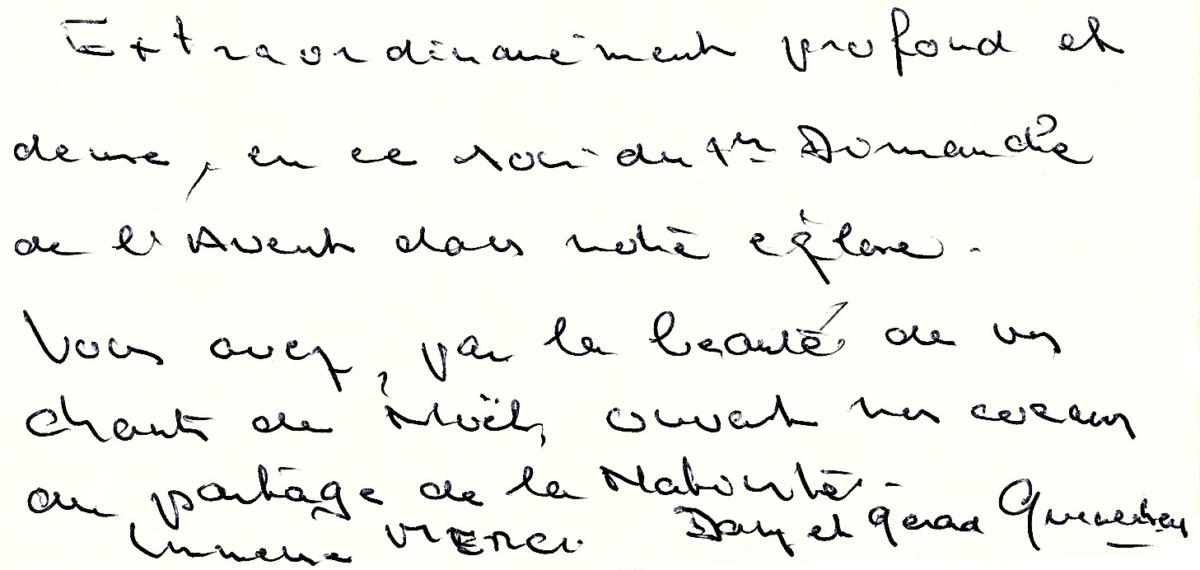 Extraordinairement profond et
dense, en ce soir du 1er Dimanche
de l'Avent dans notre église.
Vous avez, par la beauté de vos
chants de Noël, ouvert nos coeurs
au partage de la Nativité.
Immense MERCI. Dany et Gérard